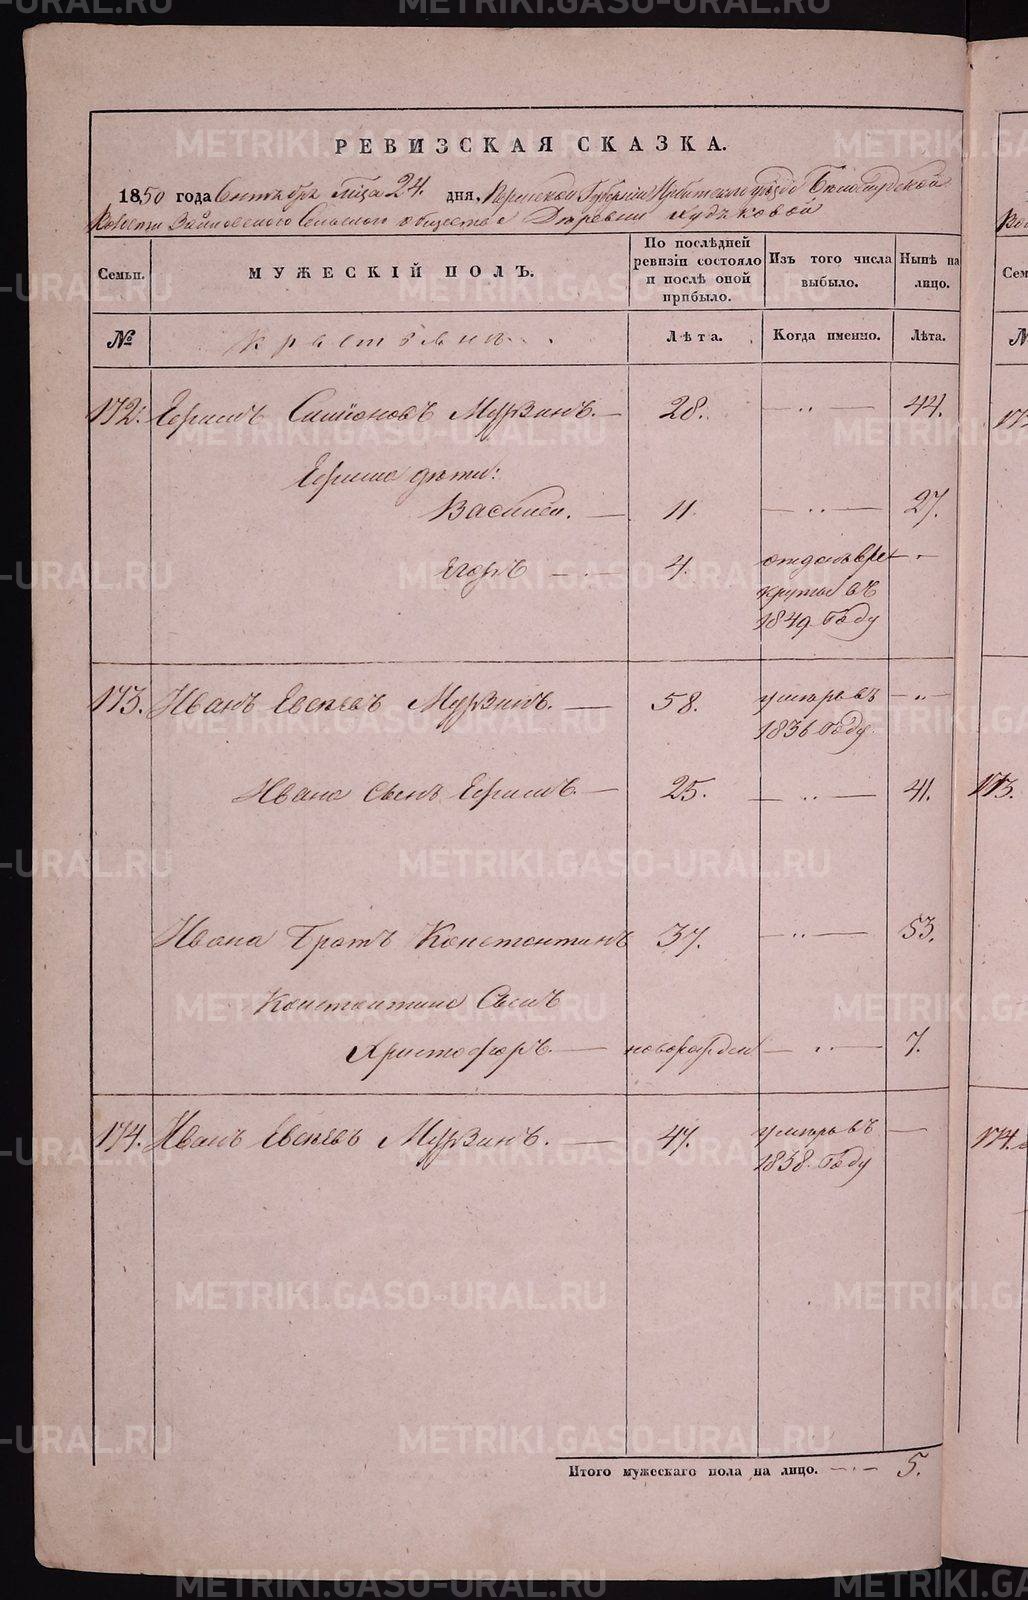 РЕВИЗСКАЯ СКАЗКА.
1850 года Сентября м̃ца 24. дня, Пермской Губернiи Ирбитскаго уѣзда Белослудской
Волости Зайковскаго Сельскаго общества Деревни Худяковой
Семьи. МУЖЕСКІЙ ПОЛЪ. По послѣдней ревизіи состояло и послѣ оной прибыло. Изъ того числа выбыло. Нынѣ на лицо.
№ Крестьянъ. Лѣта. Когда именно. Лѣта.
172. Ефимъ Самсоновъ Мурзинъ. — 28. — „ — 44.
Ефима дѣти:
Василiй. — 11. — „ — 27.
Егоръ — 4. отданъ въ ре- „
круты въ
1849 году
173. Иванъ Евсѣевъ Мурзинъ. — 58. умеръ въ — „ —
1836 году.
Ивана Сынъ Ефимъ. — 25. — „ — 41.
Ивана Братъ Константинъ 37. — „ — 53.
Константина Сынъ
Христофоръ. — новорожден — „ — 7.
174. Иванъ Евсѣевъ Мурзинъ. — 47. умеръ въ —
1838. году
Итого мужескаго пола на лицо. — „ — 5.
173.
174.